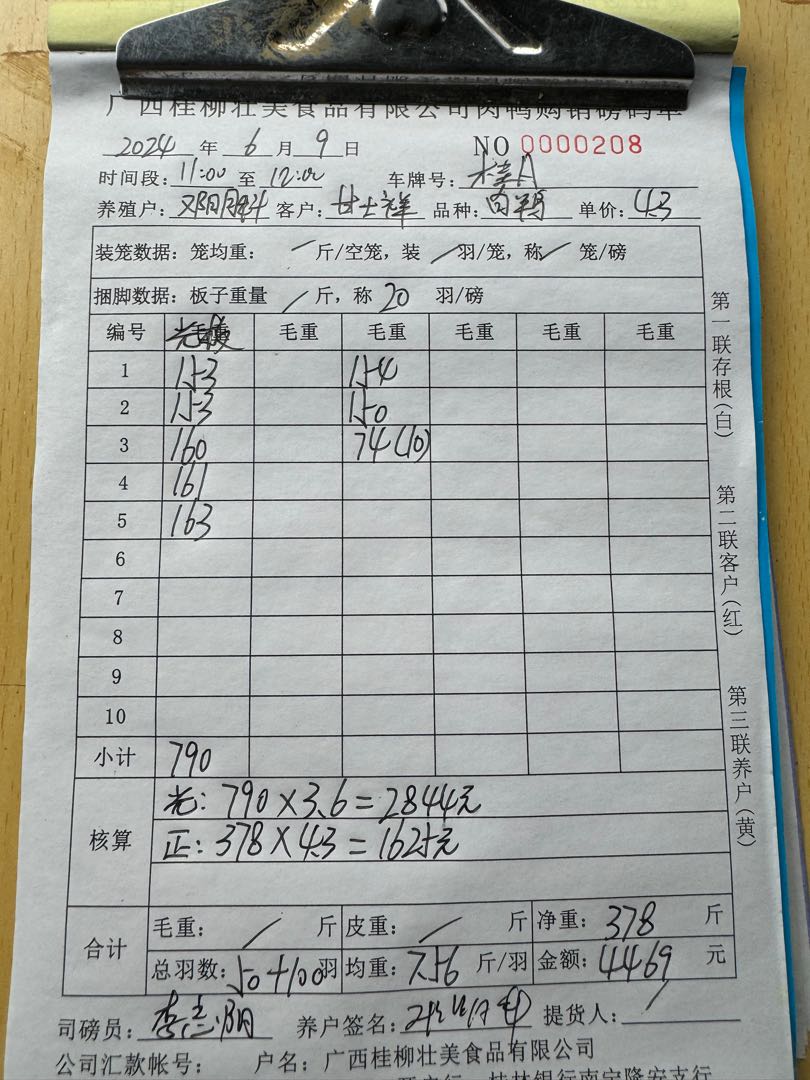 广西桂柳壮美食品有限公司肉鸭购销磅码单
2024 年 6 月 9 日 NO 0000208
时间段: 11:00 至 12:00 车牌号:
养殖户: 客户: 甘士祥 品种: 单价: 4.3
装笼数据: 笼均重: / 斤/空笼, 装 / 羽/笼, 称 / 笼/磅
捆脚数据: 板子重量 / 斤, 称 20 羽/磅
编号 毛重 毛重 毛重 毛重 毛重
1 153 154
2 153 150
3 160 74(10)
4 161
5 163
6
7
8
9
10
小计 790
核算
光: 790×3.6=2844元
正: 378×4.3=1625元
合计
毛重: / 斤 皮重: / 斤 净重: 378 斤
总羽数: 50+100羽 均重: 7.56 斤/羽 金额: 4469 元
司磅员: 养户签名: 提货人: /
公司汇款帐号: 户名: 广西桂柳壮美食品有限公司
开户行: 桂林银行南宁隆安支行
第一联存根(白)
第二联客户(红)
第三联养户(黄)